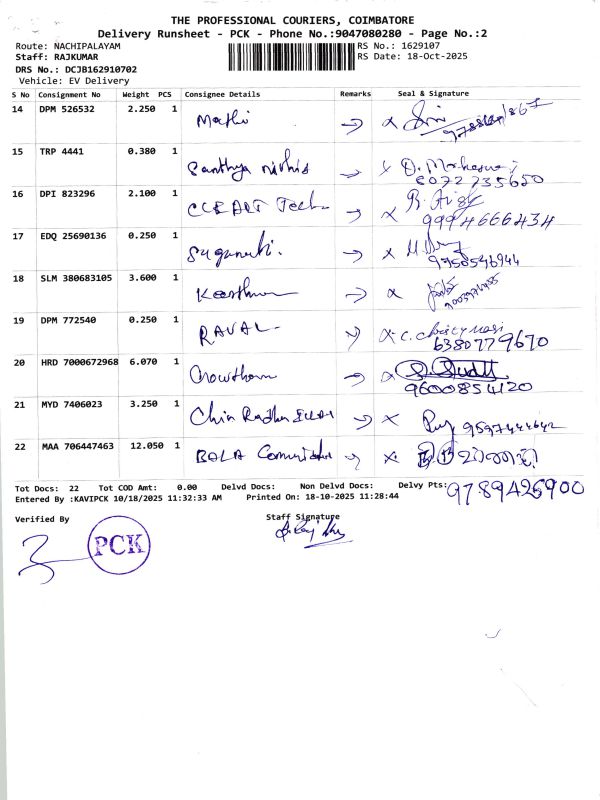 THE PROFESSIONAL COURIERS, COIMBATORE
Delivery Runsheet - PCK - Phone No.:9047080280 - Page No.:2
Route: NACHIPALAYAM RS No.: 1629107
Staff: RAJKUMAR RS Date: 18-Oct-2025
DRS No.: DCJB162910702
Vehicle: EV Delivery
S No Consignment No Weight PCS Consignee Details Remarks Seal & Signature
14 DPM 526532 2.250 1 Mathi
15 TRP 4441 0.380 1 Santhya
8072735650
16 DPI 823296 2.100 1
9994666434
17 EDQ 25690136 0.250 1
9750546944
18 SLM 380683105 3.600 1
19 DPM 772540 0.250 1 RAVAL
6380779670
20 HRD 7000672968 6.070 1 Gowtham
9600854120
21 MYD 7406023 3.250 1
9597444642
22 MAA 706447463 12.050 1 BALA
9789426900
Tot Docs: 22 Tot COD Amt: 0.00 Delvd Docs: Non Delvd Docs: Delvy Pts:
Entered By :KAVIPCK 10/18/2025 11:32:33 AM Printed On: 18-10-2025 11:28:44
Verified By Staff Signature
PCK